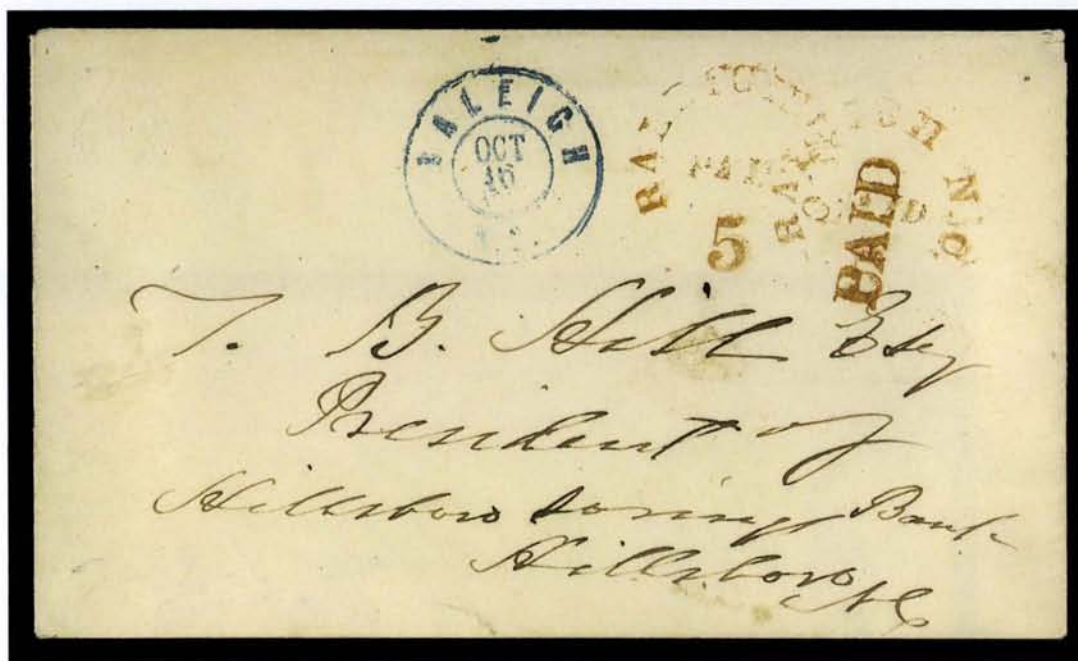 RALEIGH
OCT
16
N.C.
RALEIGH
PAID
5
RALEIGH N.C.
PAID
T. B. Hill Esq
President of
Hillsboro Savings Bank
Hillsboro
NC